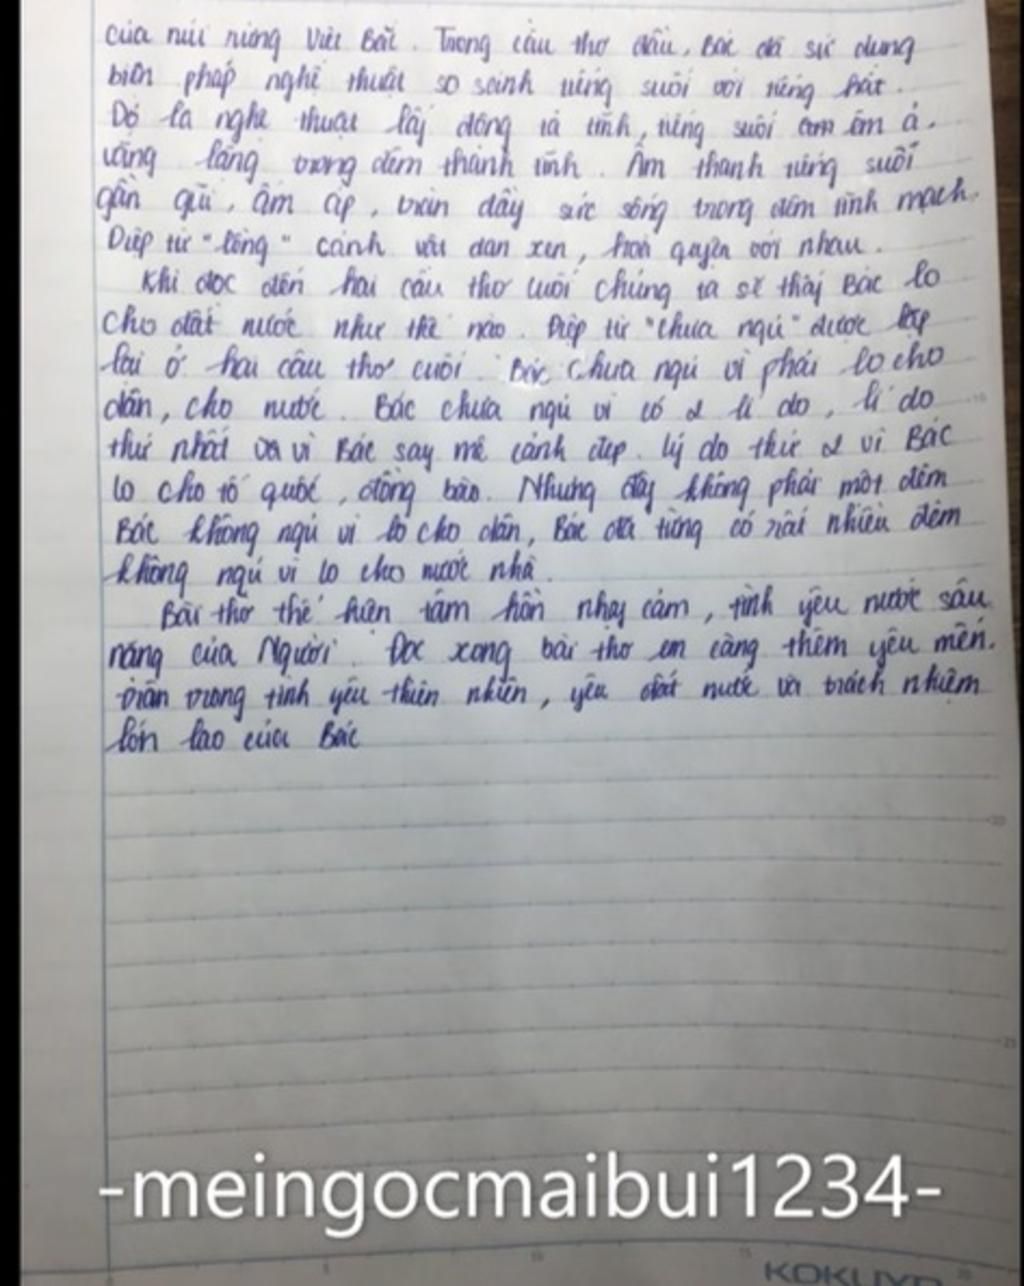 của núi rừng Việt Bắc. Trong câu thơ đầu, Bác đã sử dụng
biện pháp nghệ thuật so sánh tiếng suối với tiếng hát.
Đó là nghệ thuật lấy động tả tĩnh, tiếng suối êm ả.
vắng lặng trong đêm thanh tĩnh. Âm thanh tiếng suối
gần gũi, ấm áp, tràn đầy sức sống trong đêm tĩnh mạch.
Điệp từ "lồng" cảnh vật đan xen, hoà quyện với nhau.
Khi đọc đến hai câu thơ cuối chúng ta sẽ thấy Bác lo
cho đất nước như thế nào. Điệp từ "chưa ngủ" được lặp
lại ở hai câu thơ cuối. Bác chưa ngủ vì phải lo cho
dân, cho nước. Bác chưa ngủ vì có 2 lí do, lí do
thứ nhất là vì Bác say mê cảnh đẹp. lý do thứ 2 vì Bác
lo cho tổ quốc, đồng bào. Nhưng đây không phải một đêm
Bác không ngủ vì lo cho dân, Bác đã từng có rất nhiều đêm
không ngủ vì lo cho nước nhà.
Bài thơ thể hiện tâm hồn nhạy cảm, tình yêu nước sâu
nặng của Người. Đọc xong bài thơ em càng thêm yêu mến.
trân trọng tình yêu thiên nhiên, yêu đất nước và trách nhiệm
lớn lao của Bác
-meingocmaibui1234-
KOKUYO